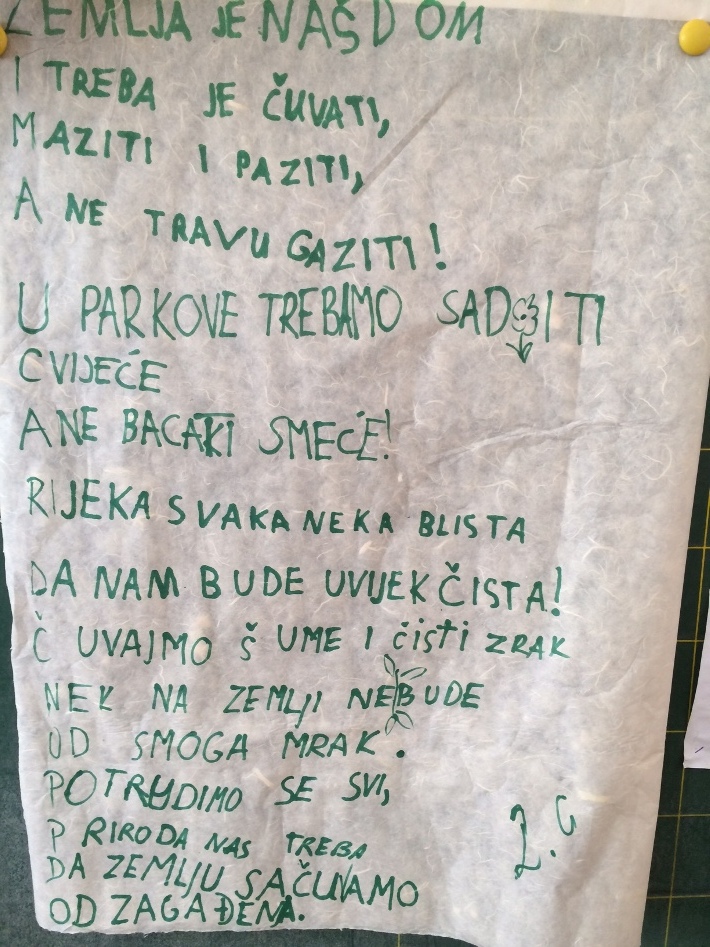 ZEMLJA JE NAŠ DOM
I TREBA JE ČUVATI,
MAZITI I PAZITI,
A NE TRAVU GAZITI!
U PARKOVE TREBAMO SADITI
CVIJEĆE
A NE BACATI SMEĆE!
RIJEKA SVAKA NEKA BLISTA
DA NAM BUDE UVIJEK ČISTA!
ČUVAJMO ŠUME I čisti ZRAK
NEK NA ZEMLJI NE BUDE
OD SMOGA MRAK.
POTRUDIMO SE SVI,
PRIRODA NAS TREBA
DA ZEMLJU SAČUVAMO
OD ZAGAĐENA.
2. G